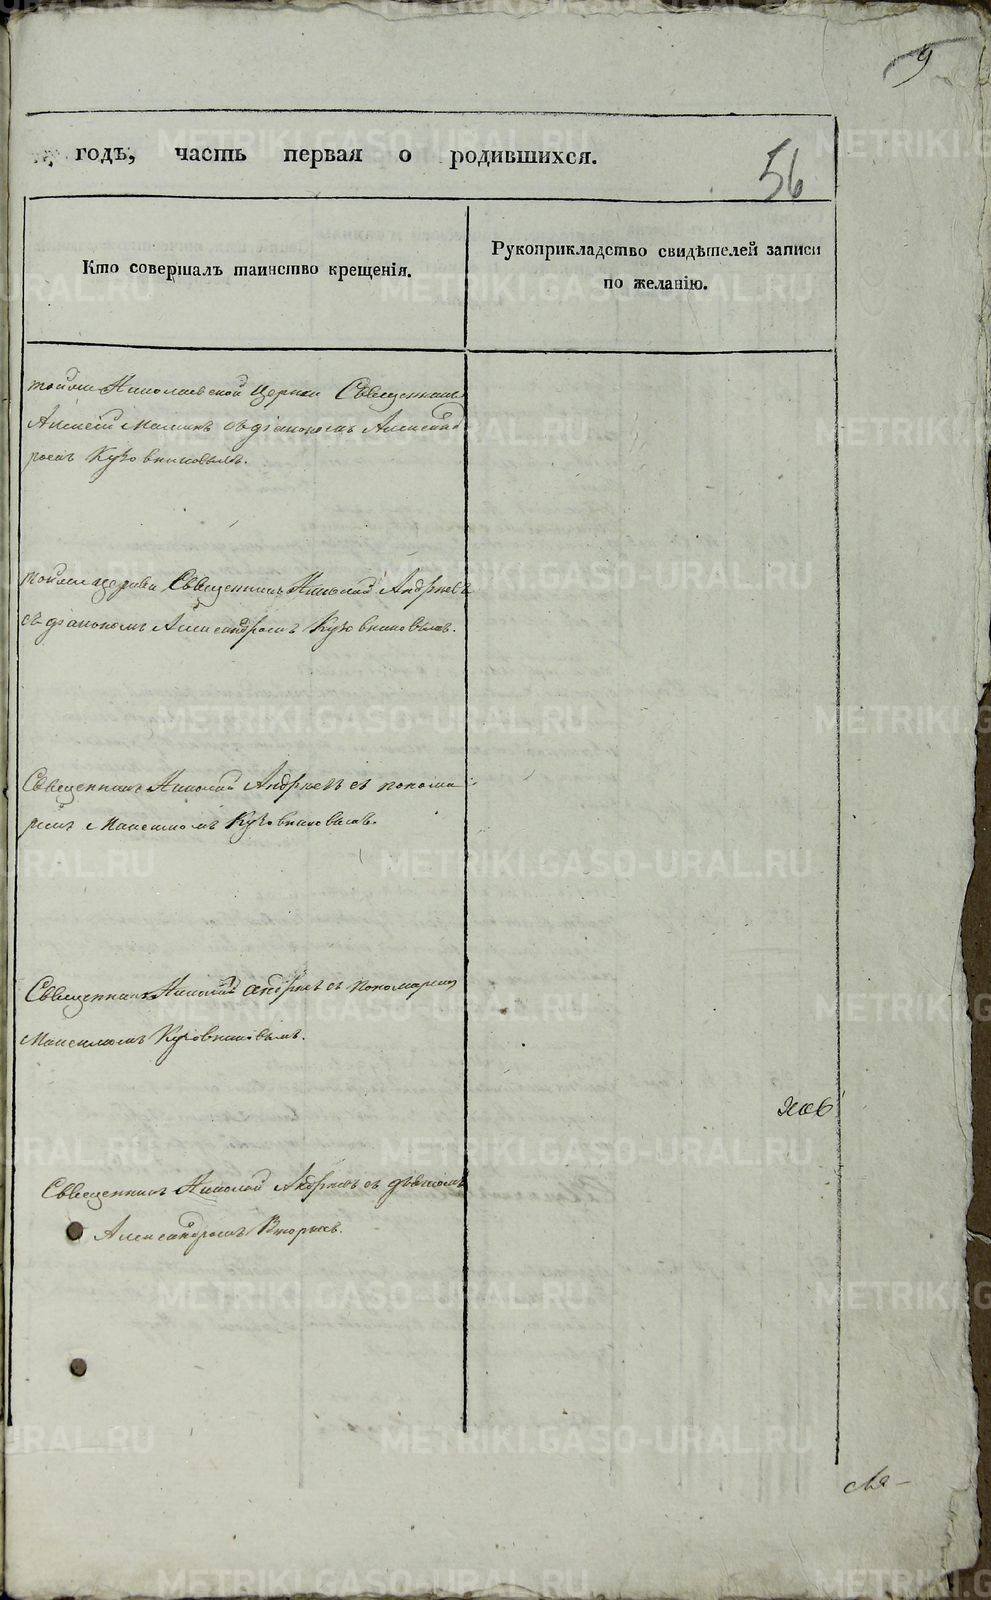 9
годъ, часть первая о родившихся.
56
Кто совершалъ таинство крещенія.
Рукоприкладство свидѣтелей записи
по желанію.
тойже Николаевской Церкви Священникъ
Алексій Малинъ съ діакономъ Александ
ромъ Кузовниковымъ.
тойже церкви Священникъ Николай Андреевъ
съ діакономъ Александромъ Кузовниковымъ.
Священникъ Николай Андреевъ съ понома
ремъ Максимомъ Кузовниковымъ.
Священникъ Николай Андреевъ съ пономаремъ
Максимомъ Кузовниковымъ.
Священникъ Николай Андреевъ съ дьякомъ
Александромъ
METRIKI.GASO-URAL.RU